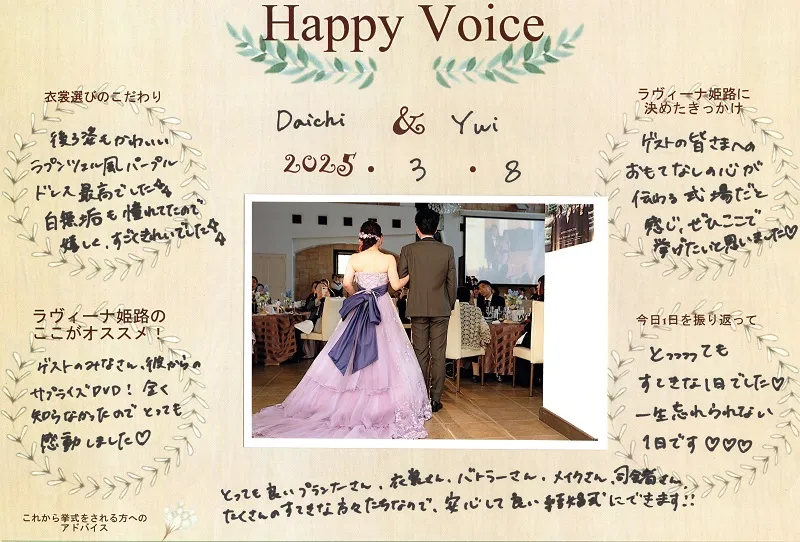 Happy Voice
Daichi & Yui
2025. 3. 8
衣裳選びのこだわり
後ろ姿もかわいい
ラプンツェル風パープル
ドレス最高でした
白無垢も憧れてたので
嬉しく、すごくきれいでした
ラヴィーナ姫路に
決めたきっかけ
ゲストの皆さまへの
おもてなしの心が
伝わる式場だと
感じ、ぜひここで
挙げたいと思いました♡
ラヴィーナ姫路の
ここがオススメ！
ゲストのみなさん、彼からの
サプライズDVD！全く
知らなかったのでとっても
感動しました♡
今日1日を振り返って
とっっっっても
すてきな1日でした♡
一生忘れられない
1日です♡♡♡
これから挙式をされる方への
アドバイス
とっても良いプランナーさん、衣裳さん、バトラーさん、メイクさん、司会者さん、
たくさんのすてきな方々たちなので、安心して良い結婚式にできます!!